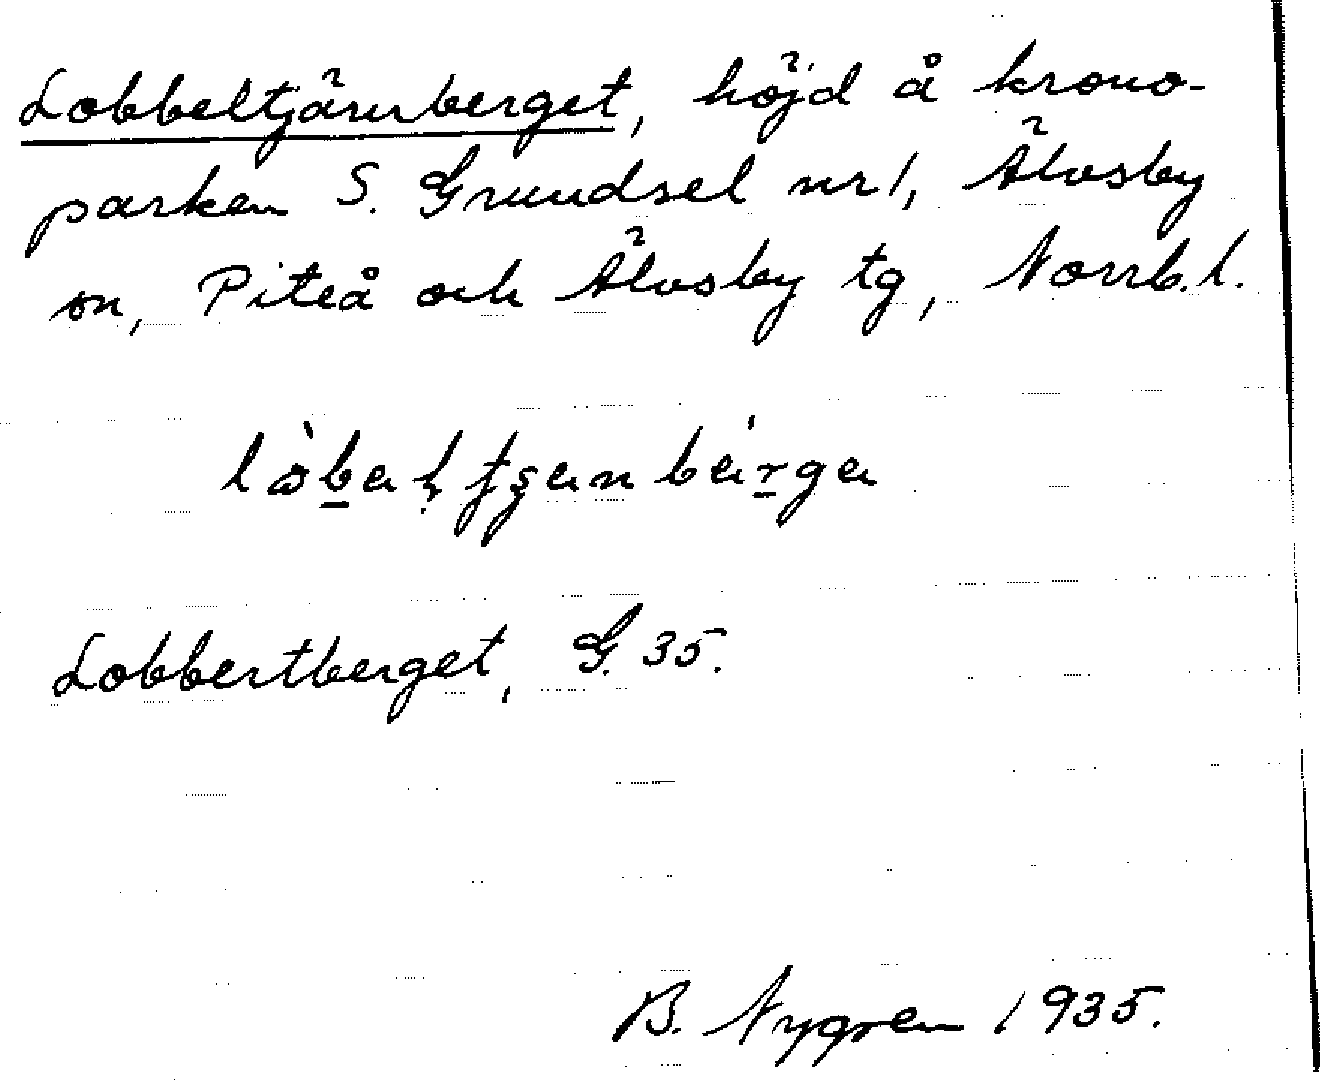 Lobbeltjärnberget, höjd å krono-
parken S. Grundsel nr 1, Älvsby
sn, Piteå och Älvsby tg, Norrb. l.
Lobbertberget, G. 35.
B. Nygren 1935.